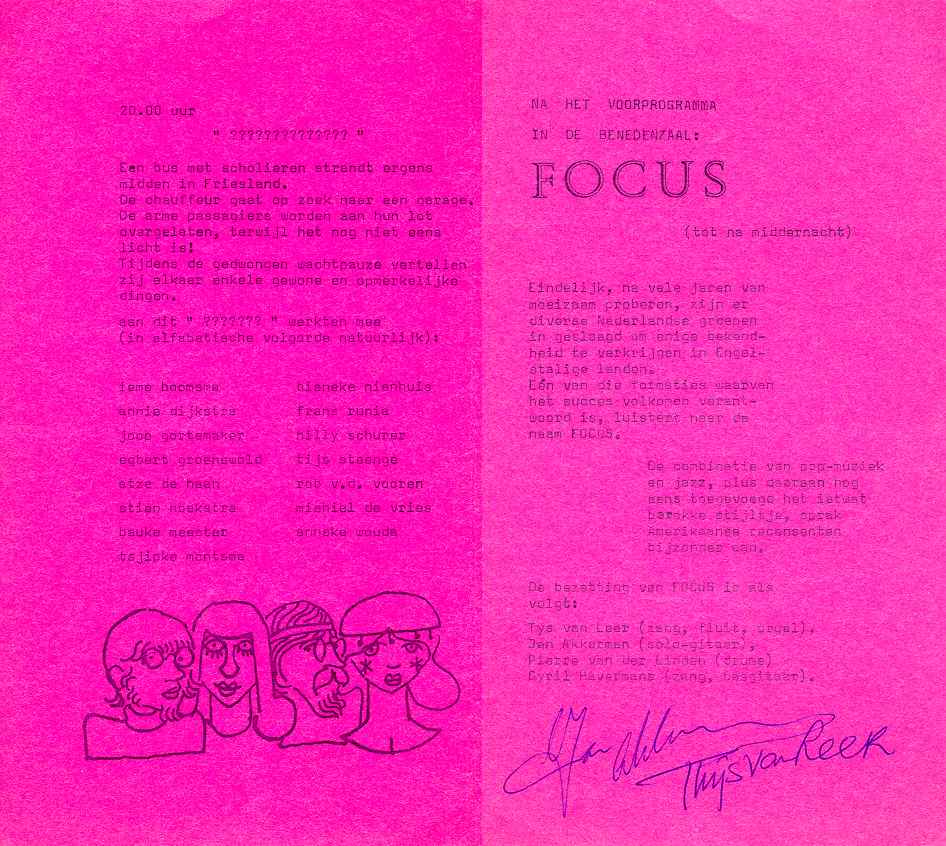 20.00 uur
" ?????????????? "
Een bus met scholieren strandt ergens
midden in Friesland.
De chauffeur gaat op zoek naar een garage.
De arme passagiers worden aan hun lot
overgelaten, terwijl het nog niet eens
licht is!
Tijdens de gedwongen wachtpauze vertellen
zij elkaar enkele gewone en opmerkelijke
dingen.
aan dit " ??????? " werkten mee
(in alfabetische volgorde natuurlijk):
ieme boomsma
annie dijkstra
joop gortemaker
egbert groenewold
atze de haan
stien hoekstra
bauke meester
tsjipke montsma
bieneke nienhuis
frans runia
hilly schurer
tijs steenge
rob v.d. vooren
michiel de vries
anneke wouda
NA HET VOORPROGRAMMA
IN DE BENEDENZAAL:
FOCUS
(tot na middernacht)
Eindelijk, na vele jaren van
moeizaam proberen, zijn er
diverse Nederlandse groepen
in geslaagd om enige bekend-
heid te verkrijgen in Engel-
stalige landen.
Eén van die formaties waarvan
het succes volkomen verant-
woord is, luistert naar de
naam FOCUS.
De combinatie van pop-muziek
en jazz, plus daaraan nog
eens toegevoegd het ietwat
barokke stijltje, sprak
Amerikaanse recensenten
bijzonder aan.
De bezetting van FOCUS is als
volgt:
Tys van Leer (zang, fluit, orgel).
Jan Akkerman (solo-gitaar),
Pierre van der Linden (drums)
Cyril Havermans (zang, basgitaar).
Jan Akkerman
Thijs van Leer